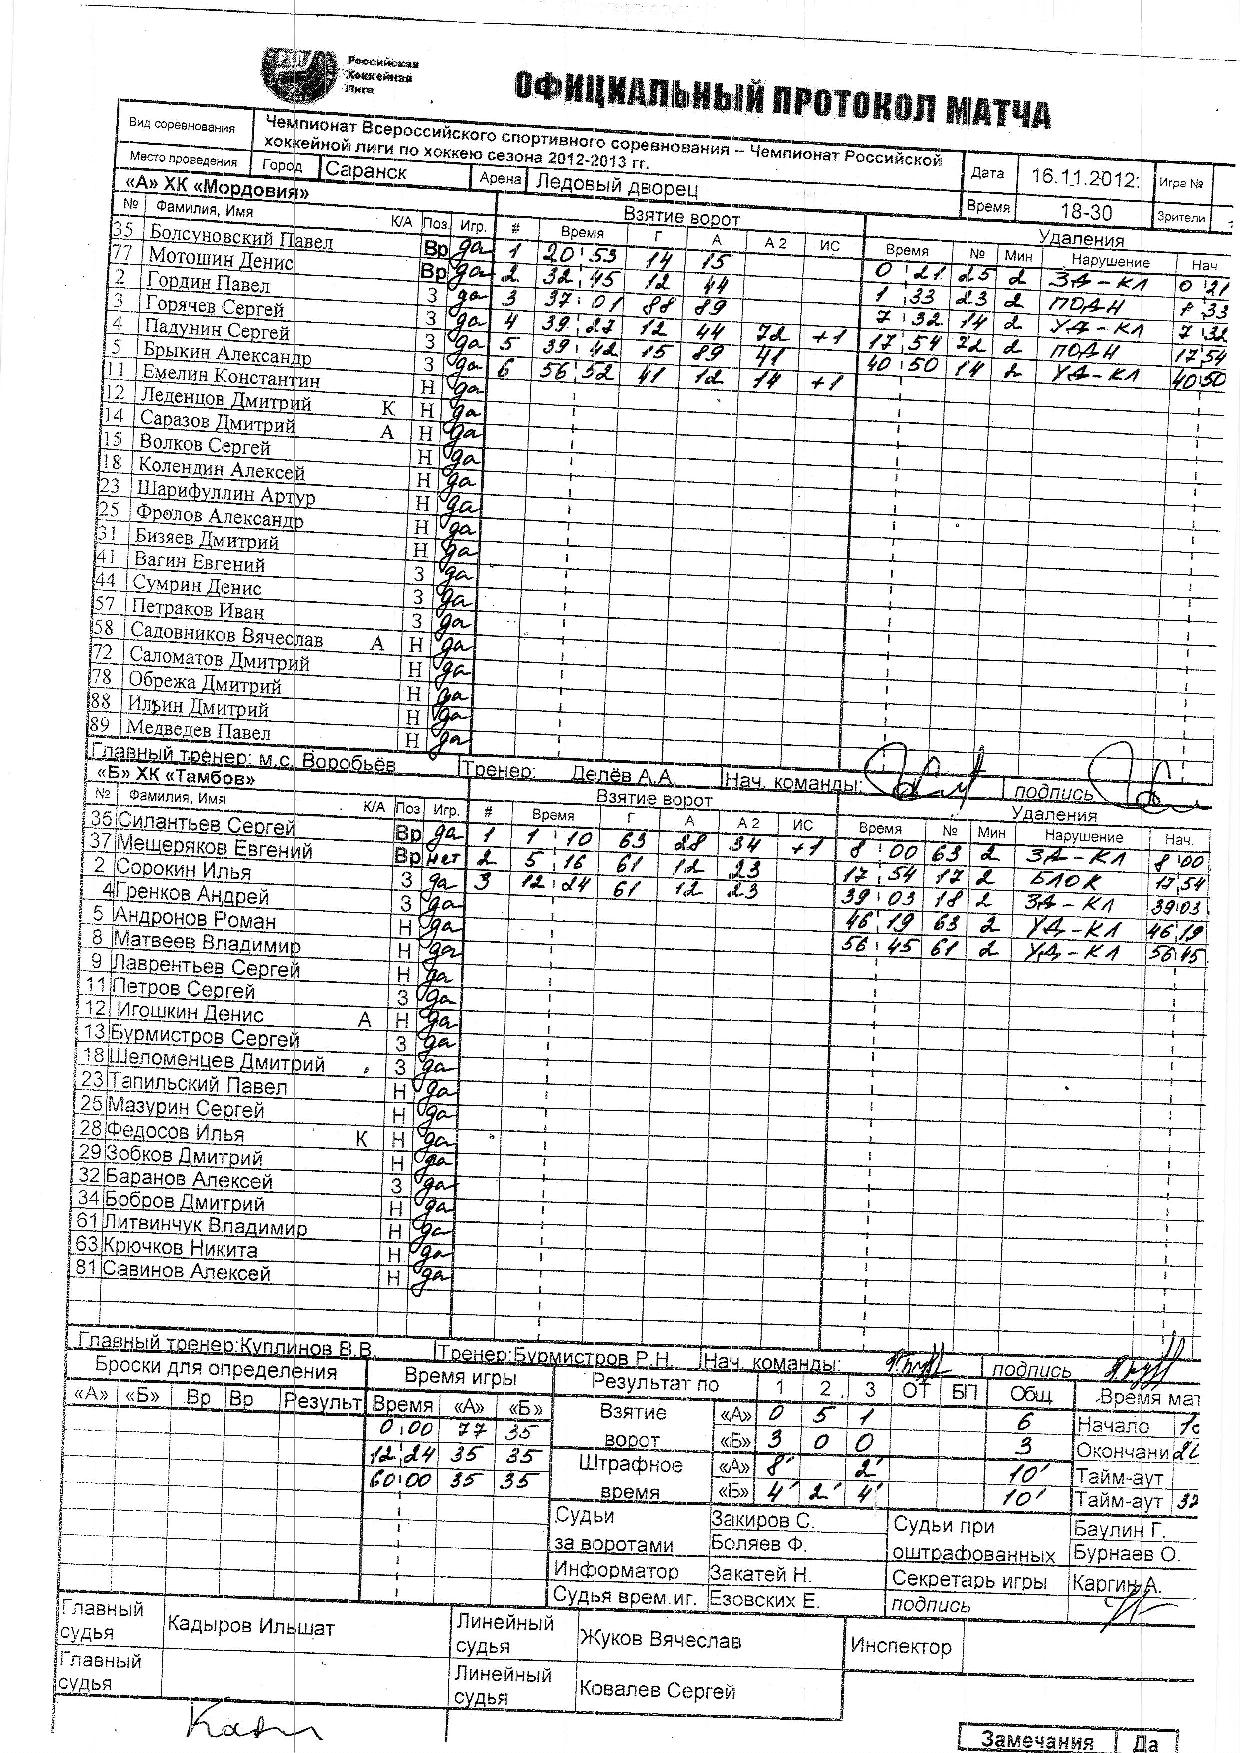 Российская
Хоккейная
Лига
ОФИЦИАЛЬНЫЙ ПРОТОКОЛ МАТЧА
Вид соревнования Чемпионат Всероссийского спортивного соревнования – Чемпионат Российской
хоккейной лиги по хоккею сезона 2012-2013 гг.
Дата 16.11.2012: Игра №
Место проведения Город Саранск Арена Ледовый дворец Время 18-30 Зрители
«А» ХК «Мордовия» Взятие ворот Удаления
№ Фамилия, Имя К/А Поз Игр. # Время Г А А 2 ИС Время № Мин Нарушение Нач
35 Болсуновский Павел Вр да 1 20:53 14 15 0:21 25 2 ЗД-КЛ 0 21
77 Мотошин Денис Вр да 2 32:45 12 44 1:33 23 2 ПОДН 1 33
2 Гордин Павел З да 3 37:01 88 89 7:32 14 2 УД-КЛ 7 32
3 Горячев Сергей З да 4 39:27 12 44 72 +1 17:54 72 2 ПОДН 17 54
4 Падунин Сергей З да 5 39:42 15 89 41 40:50 14 2 УД-КЛ 40 50
5 Брыкин Александр З да 6 56:52 41 12 14 +1
11 Емелин Константин Н да
12 Леденцов Дмитрий К Н да
14 Саразов Дмитрий А Н да
15 Волков Сергей Н да
18 Колендин Алексей Н да
23 Шарифуллин Артур Н да
25 Фролов Александр Н да
31 Бизяев Дмитрий Н да
41 Вагин Евгений З да
44 Сумрин Денис З да
57 Петраков Иван З да
58 Садовников Вячеслав А Н да
72 Саломатов Дмитрий Н да
78 Обрежа Дмитрий Н да
88 Ильин Дмитрий Н да
89 Медведев Павел Н да
Главный тренер: м.с. Воробьёв Тренер: Делёв А.А. Нач. команды: подпись
«Б» ХК «Тамбов» Взятие ворот Удаления
№ Фамилия, Имя К/А Поз Игр. # Время Г А А 2 ИС Время № Мин Нарушение Нач.
35 Силантьев Сергей Вр да 1 1:10 63 28 34 +1 8:00 63 2 ЗД-КЛ 8 00
37 Мещеряков Евгений Вр нет 2 5:16 61 12 23 17:54 17 2 БЛОК 17 54
2 Сорокин Илья З да 3 12:24 61 12 23 39:03 18 2 ЗД-КЛ 39 03
4 Гренков Андрей З да 46:19 63 2 УД-КЛ 46 19
5 Андронов Роман Н да 56:45 61 2 УД-КЛ 56 45
8 Матвеев Владимир Н да
9 Лаврентьев Сергей Н да
11 Петров Сергей З да
12 Игошкин Денис А Н да
13 Бурмистров Сергей З да
18 Шеломенцев Дмитрий З да
23 Тапильский Павел Н да
25 Мазурин Сергей Н да
28 Федосов Илья К Н да
29 Зобков Дмитрий Н да
32 Баранов Алексей З да
34 Бобров Дмитрий Н да
61 Литвинчук Владимир Н да
63 Крючков Никита Н да
81 Савинов Алексей Н да
Главный тренер: Куплинов В.В. Тренер: Бурмистров Р.Н. Нач. команды: подпись
Броски для определения Время игры Результат по 1 2 3 ОТ БП Общ Время мат
«А» «Б» Вр Вр Результ Время «А» «Б»
Взятие ворот «А» 0 5 1 6 Начало
0:00 77 35
«Б» 3 0 0 3 Окончани
12:24 35 35
Штрафное время «А» 8' 2' 10' Тайм-аут
60:00 35 35
«Б» 4' 2' 4' 10' Тайм-аут 32
Судьи за воротами Закиров С. Судьи при оштрафованных Баулин Г.
Боляев Ф. Бурнаев О.
Информатор Закатей Н. Секретарь игры Каргин А.
Судья врем.иг. Езовских Е. подпись
Главный судья Кадыров Ильшат Линейный судья Жуков Вячеслав Инспектор
Главный судья Линейный судья Ковалев Сергей
Замечания Да